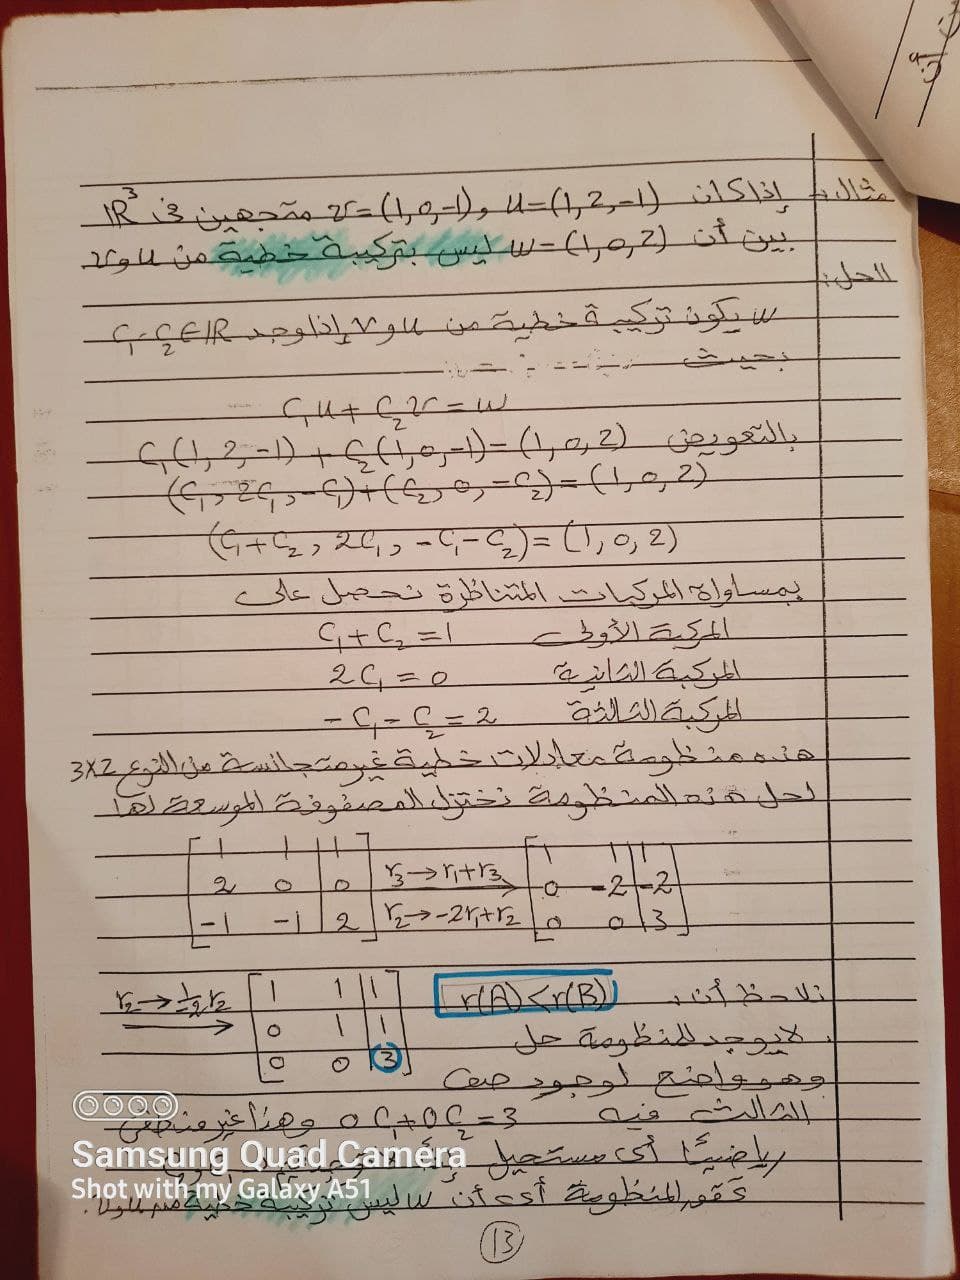 مثال: إذا كان u=(1,2,-1) و v=(1,0,-1) متجهين في IR³
بين أن w=(1,0,2) ليس بتركيبة خطية من u و v
الحل:
w يكون تركيبة خطية من u و v إذا وجد C₁, C₂ ∈ IR
بحيث
C₁u + C₂v = w
بالتعويض C₁(1,2,-1) + C₂(1,0,-1) = (1,0,2)
(C₁, 2C₁, -C₁) + (C₂, 0, -C₂) = (1,0,2)
(C₁+C₂, 2C₁, -C₁-C₂) = (1,0,2)
بمساواة المركبات المتناظرة نحصل على
المركبة الأولى C₁+C₂=1
المركبة الثانية 2C₁=0
المركبة الثالثة -C₁-C₂=2
هذه منظومة معادلات خطية غير متجانسة من النوع 3x2
لحل هذه المنظومة نختزل المصفوفة الموسعة لها
1 1 | 1 1 1 | 1
2 0 | 0 r₃→r₁+r₃ 0 -2 | -2
-1 -1 | 2 r₂→-2r₁+r₂ 0 0 | 3
r₂→1/-2 r₂ 1 1 | 1 نلاحظ أن: r(A)<r(B)
0 1 | 1 لا يوجد للمنظومة حل
0 0 | 3 وهو واضح لوجود صف
الثالث فيه 0C₁+0C₂=3 وهذا غير منطقي
رياضيًا أي مستحيل
المنظومة أي أن w ليس تركيبة خطية من u و v.
13
Samsung Quad Camera
Shot with my Galaxy A51